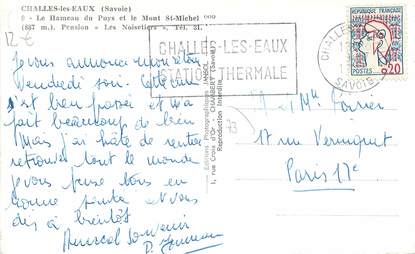 CHALLES-les-EAUX (Savoie)
9 - Le Hameau du Puys et le Mont St-Michel
(887 m.). Pension « Les Noisetiers », Tél. 31.
12 €
CHALLES-LES-EAUX
STATION THERMALE
CHALLES
SAVOIE
REPUBLIQUE FRANCAISE
POSTES
0,20
Je vous annonce mon retour
Vendredi soir.
s'est bien passée et m'a
fait beaucoup de bien
Mais j'ai hâte de rentrer
retrouver tout le monde
Je vous pense tous en
bonne santé et vous
dis à bientôt
Amical Souvenir
Editions Photographiques
1, rue Croix d'Or, CHAMBÉRY (Savoie)
Reproduction Interdite
73
et Mme Poirier
17 rue Verniquet
Paris 17e